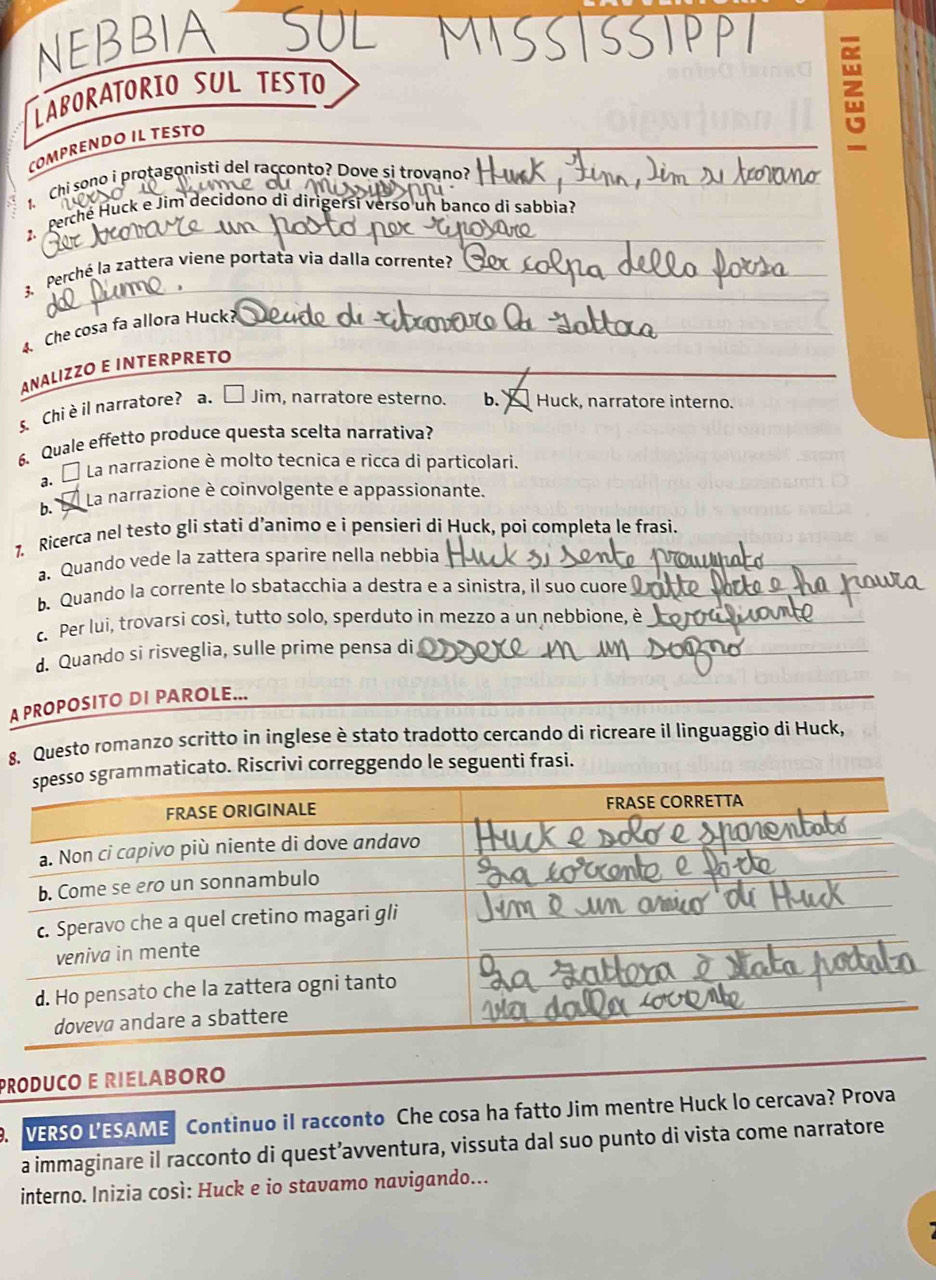 NEBBIA SUL MISSISSIPPI
I GENERI
LABORATORIO SUL TESTO
COMPRENDO IL TESTO
1. Chi sono i protagonisti del racconto? Dove si trovano? Huck, Finn, Jim si trovano
verso il fiume di mississippi.
2. Perché Huck e Jim decidono di dirigersi verso un banco di sabbia?
Per trovare un posto per riposare
3. Perché la zattera viene portata via dalla corrente? Per colpa della forza
del fiume.
4. Che cosa fa allora Huck? Decide di ritrovare la zattora
ANALIZZO E INTERPRETO
5. Chi è il narratore? a. Jim, narratore esterno. b. Huck, narratore interno.
6. Quale effetto produce questa scelta narrativa?
a. La narrazione è molto tecnica e ricca di particolari.
b. La narrazione è coinvolgente e appassionante.
7. Ricerca nel testo gli stati d'animo e i pensieri di Huck, poi completa le frasi.
a. Quando vede la zattera sparire nella nebbia Huck si sente
b. Quando la corrente lo sbatacchia a destra e a sinistra, il suo cuore batte forte e ha paura
c. Per lui, trovarsi così, tutto solo, sperduto in mezzo a un nebbione, è terrificante
d. Quando si risveglia, sulle prime pensa di essere in un sogno
A PROPOSITO DI PAROLE...
8. Questo romanzo scritto in inglese è stato tradotto cercando di ricreare il linguaggio di Huck,
spesso sgrammaticato. Riscrivi correggendo le seguenti frasi.
FRASE ORIGINALE FRASE CORRETTA
a. Non ci capivo più niente di dove andavo Huck e solo e sparentato
b. Come se ero un sonnambulo La corrente e forte
c. Speravo che a quel cretino magari gli Jim e un amico di Huck
veniva in mente
d. Ho pensato che la zattera ogni tanto La zattora è stata portata
doveva andare a sbattere via dalla corrente
PRODUCO E RIELABORO
9. VERSO L'ESAME Continuo il racconto Che cosa ha fatto Jim mentre Huck lo cercava? Prova
a immaginare il racconto di quest'avventura, vissuta dal suo punto di vista come narratore
interno. Inizia così: Huck e io stavamo navigando...